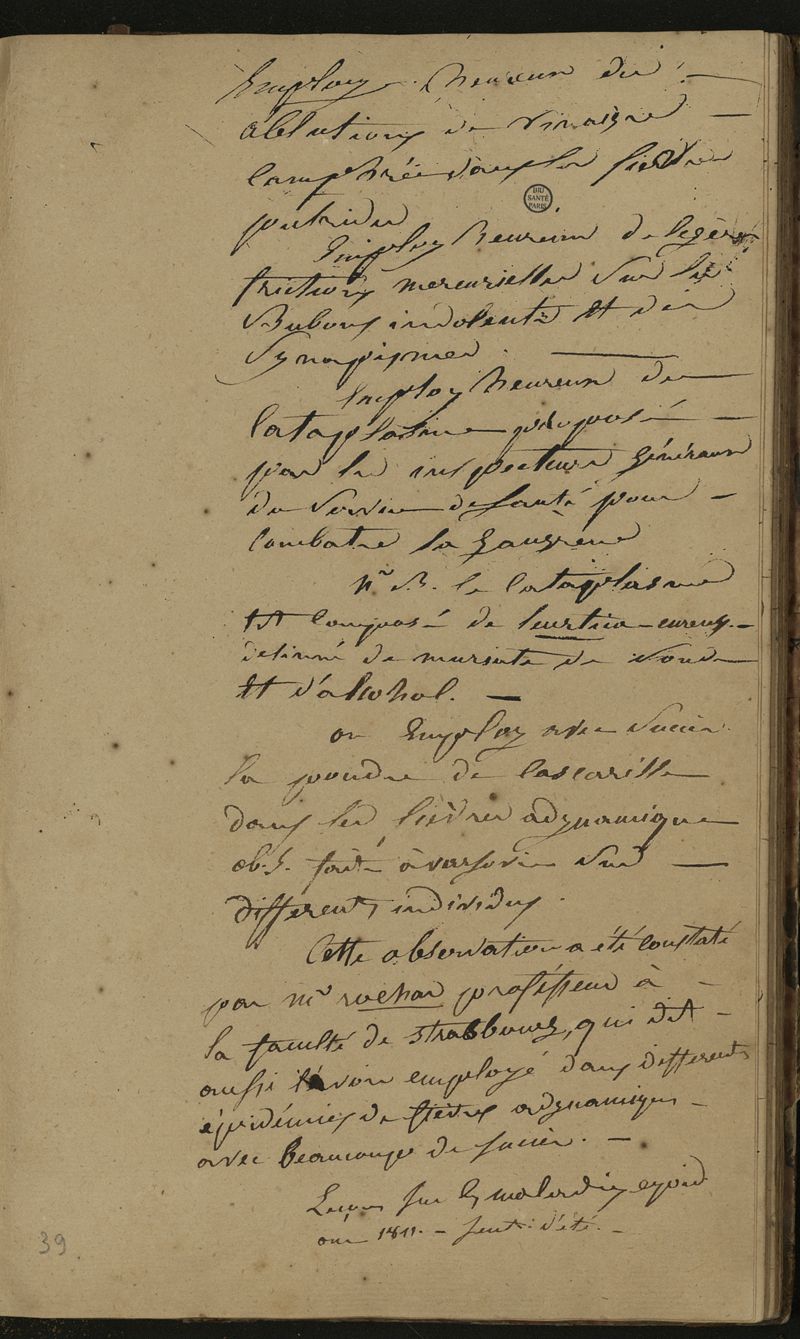 Employ heureux des
ablutions de vinaigre
camphrée dans les fievres
putrides
BIU
SANTÉ
PARIS
Employ heureux de legères
frictions mercurielles sur les
Bubons indolents et des
Synapismes.
Employ heureux du
Cataplasme proposé
par les inspecteurs généraux
du service de santé pour
combatre la gangrene
N.B. le Cataplasme
est composé de
de muriate de soude
et d'alcohol.
on Employ avec succès
la poudre de cascarille
dans les fièvres adynamique
obs. faite à varsovie sur
different individus.
Cette observation a été constaté
par mr rochar professeur à
la faculté de strasbourg, qui dit
aussi l'avoir employé dans different
épidémies de fièvres adynamiques
avec beaucoup de succès.
Leçons sur les maladies
1811. - d'été.
39